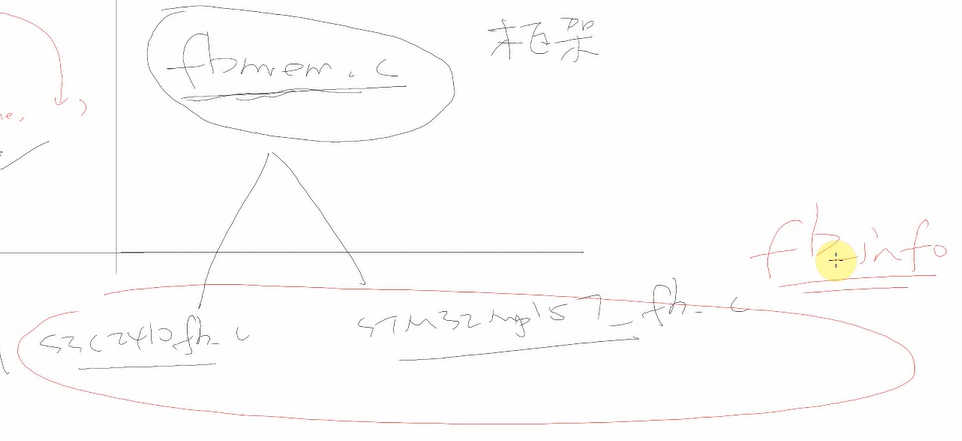 框架
fbmem.c
fb_info
S3C2410fb.c
STM32mp157_fb.c